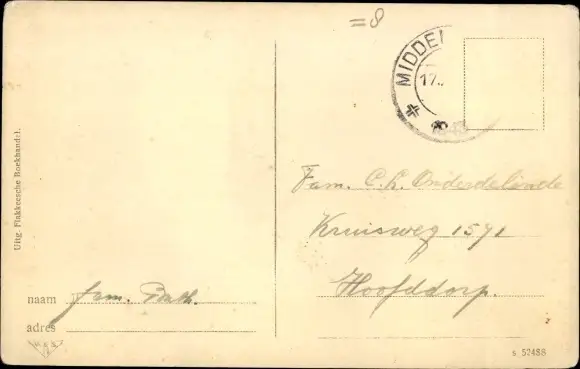 =8
MIDDEL
17.
Uitg. Flakkeesche Boekhandel.
Fam. C. L. Onderdelinde
Kruisweg 1591
Hoofddorp.
naam fam. Bath.
adres
s 52488